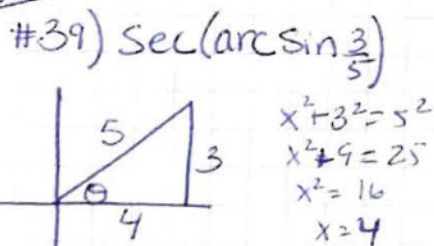 #39) sec(arcsin 3/5)
5
3
θ
4
x²+3²=5²
x²+9=25
x²=16
x=4